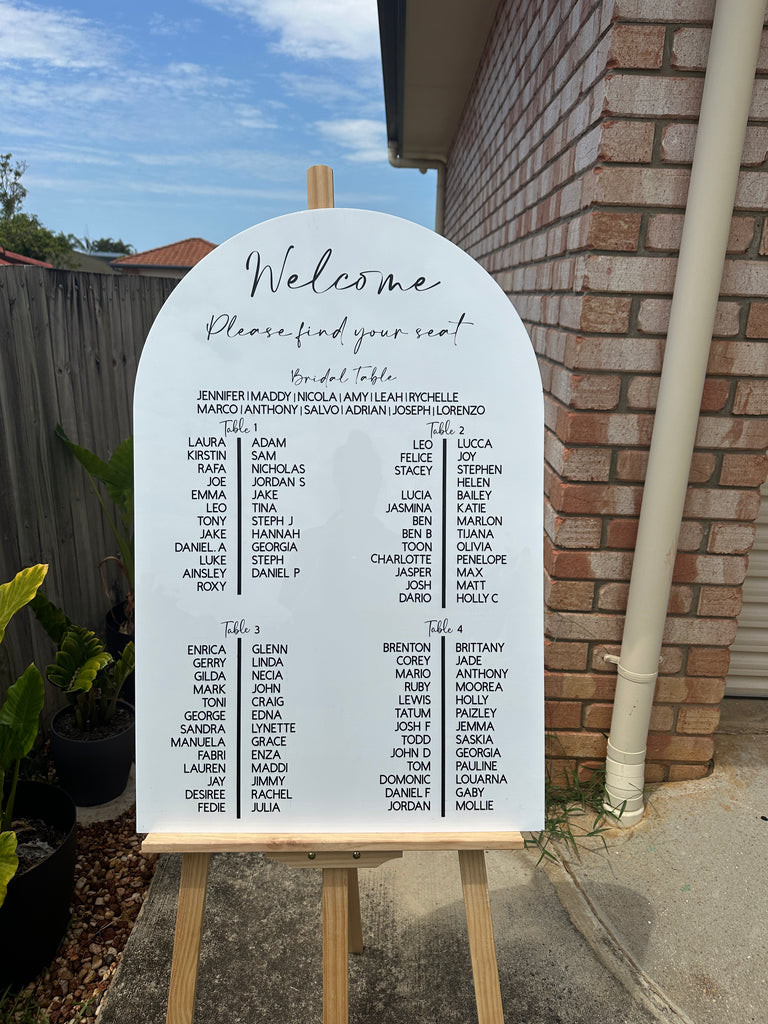 Welcome
Please find your seat
Bridal Table
JENNIFER | MADDY | NICOLA | AMY | LEAH | RYCHELLE
MARCO | ANTHONY | SALVO | ADRIAN | JOSEPH | LORENZO
Table 1
LAURA ADAM
KIRSTIN SAM
RAFA NICHOLAS
JOE JORDAN S
EMMA JAKE
LEO TINA
TONY STEPH J
JAKE HANNAH
DANIEL. A GEORGIA
LUKE STEPH
AINSLEY DANIEL P
ROXY
Table 2
LEO LUCCA
FELICE JOY
STACEY STEPHEN
HELEN
LUCIA BAILEY
JASMINA KATIE
BEN MARLON
BEN B TIJANA
TOON OLIVIA
CHARLOTTE PENELOPE
JASPER MAX
JOSH MATT
DARIO HOLLY C
Table 3
ENRICA GLENN
GERRY LINDA
GILDA NECIA
MARK JOHN
TONI CRAIG
GEORGE EDNA
SANDRA LYNETTE
MANUELA GRACE
FABRI ENZA
LAUREN MADDI
JAY JIMMY
DESIREE RACHEL
FEDIE JULIA
Table 4
BRENTON BRITTANY
COREY JADE
MARIO ANTHONY
RUBY MOOREA
LEWIS HOLLY
TATUM PAIZLEY
JOSH F JEMMA
TODD SASKIA
JOHN D GEORGIA
TOM PAULINE
DOMONIC LOUARNA
DANIEL F GABY
JORDAN MOLLIE